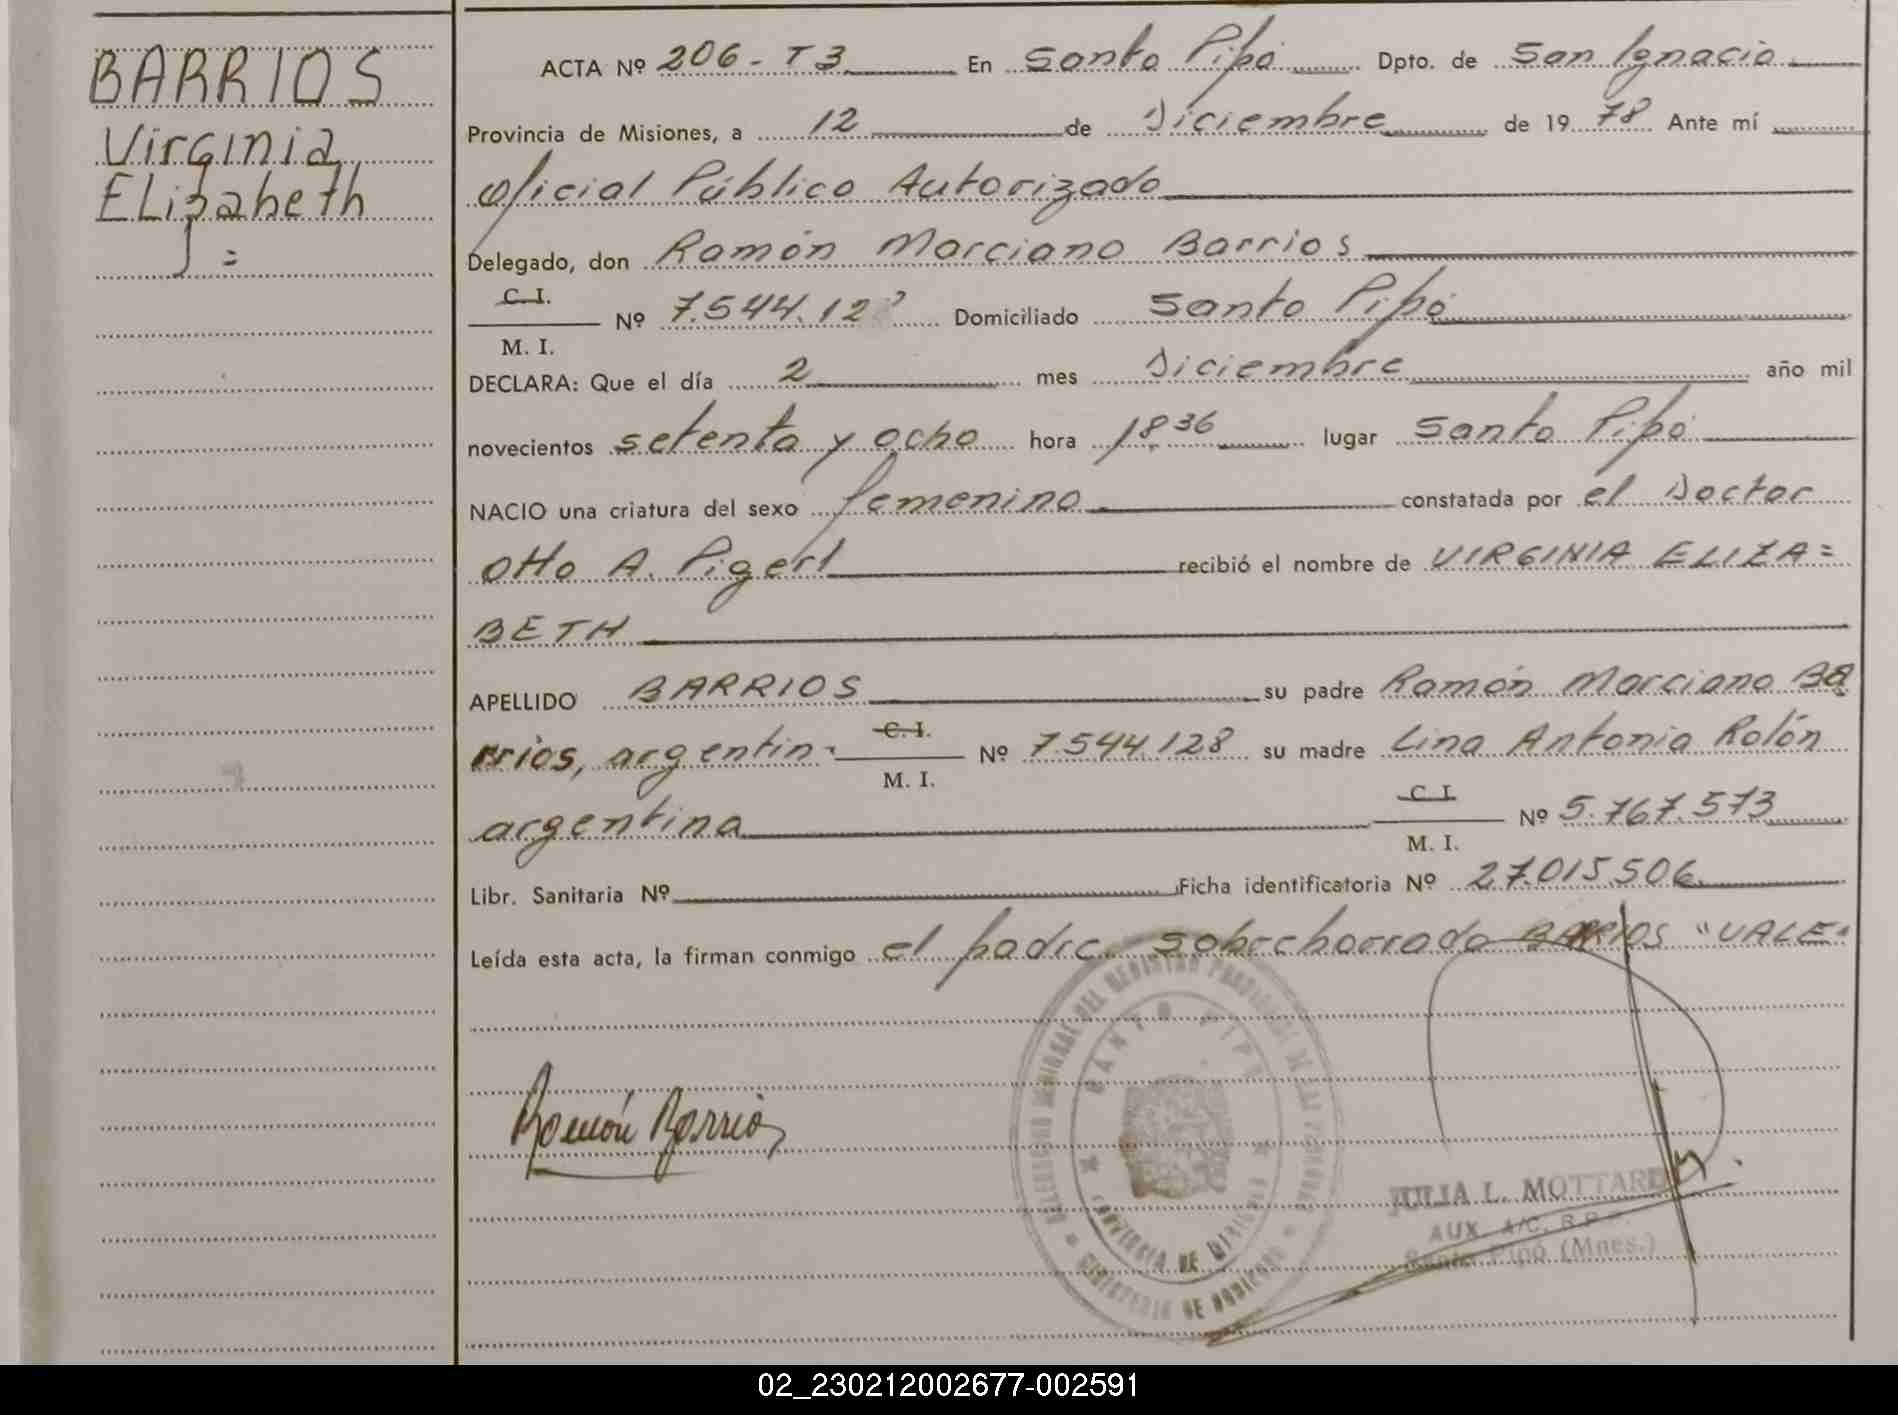 BARRIOS
Virginia
Elizabeth
=
ACTA Nº 206 - T3 En Santo Pipó Dpto. de San Ignacio
Provincia de Misiones, a 12 de Diciembre de 1978 Ante mí
Oficial Público Autorizado
Delegado, don Ramón Marciano Barrios
C. I.
Nº 7.544.12 Domiciliado Santo Pipó
M. I.
DECLARA: Que el día 2 mes Diciembre año mil
novecientos setenta y ocho hora 18.36 lugar Santo Pipó
NACIO una criatura del sexo femenino constatada por el Doctor
Otto A. Pigerl recibió el nombre de VIRGINIA ELIZA=
BETH
APELLIDO BARRIOS su padre Ramón Marciano Ba
rrios, argentin. C. I. Nº 7.544.128 su madre Lina Antonia Rolón
M. I.
argentina C. I. Nº 5.767.573
M. I.
Libr. Sanitaria Nº Ficha identificatoria Nº 27.015.506
Leída esta acta, la firman conmigo el padre. sobrechorrado BARRIOS "VALE"
Ramón Barrios
SANTO PIPÓ
PROVINCIA DE MISIONES
JULIA L. MOTTARD
AUX. A/C. R.P.
Santo Pipó (Mnes.)
02_230212002677-002591